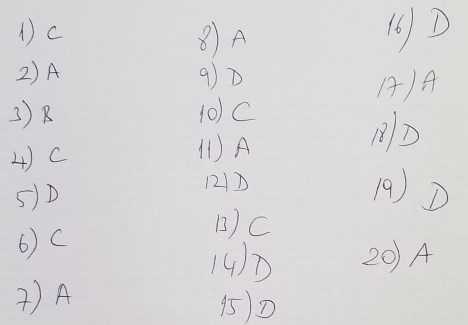 1) C
2) A
3) B
4) C
5) D
6) C
7) A
8) A
9) D
10) C
11) A
12) D
13) C
14) D
15) D
16) D
17) A
18) D
19) D
20) A